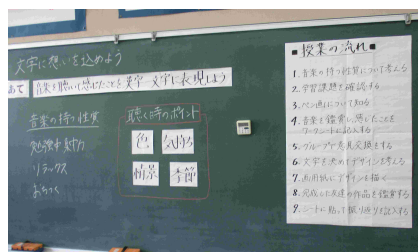 文字に想いを込めよう
あて
音楽を聴いて感じたことを漢字一文字に表現しよう
音楽の持つ性質
勉強中
リラックス
おちつく
聴く時のポイント
色
気持ち
情景
季節
■授業の流れ■
1.音楽の持つ性質について考える
2.学習課題を確認する
3.ペン画について知る
4.音楽を鑑賞し感じたことを
ワークシートに記入する
5.グループで意見交換をする
6.文字を決めデザインを考える
7.画用紙にデザインを描く
8.完成した友達の作品を鑑賞する
9.シートに貼って振り返りを記入する